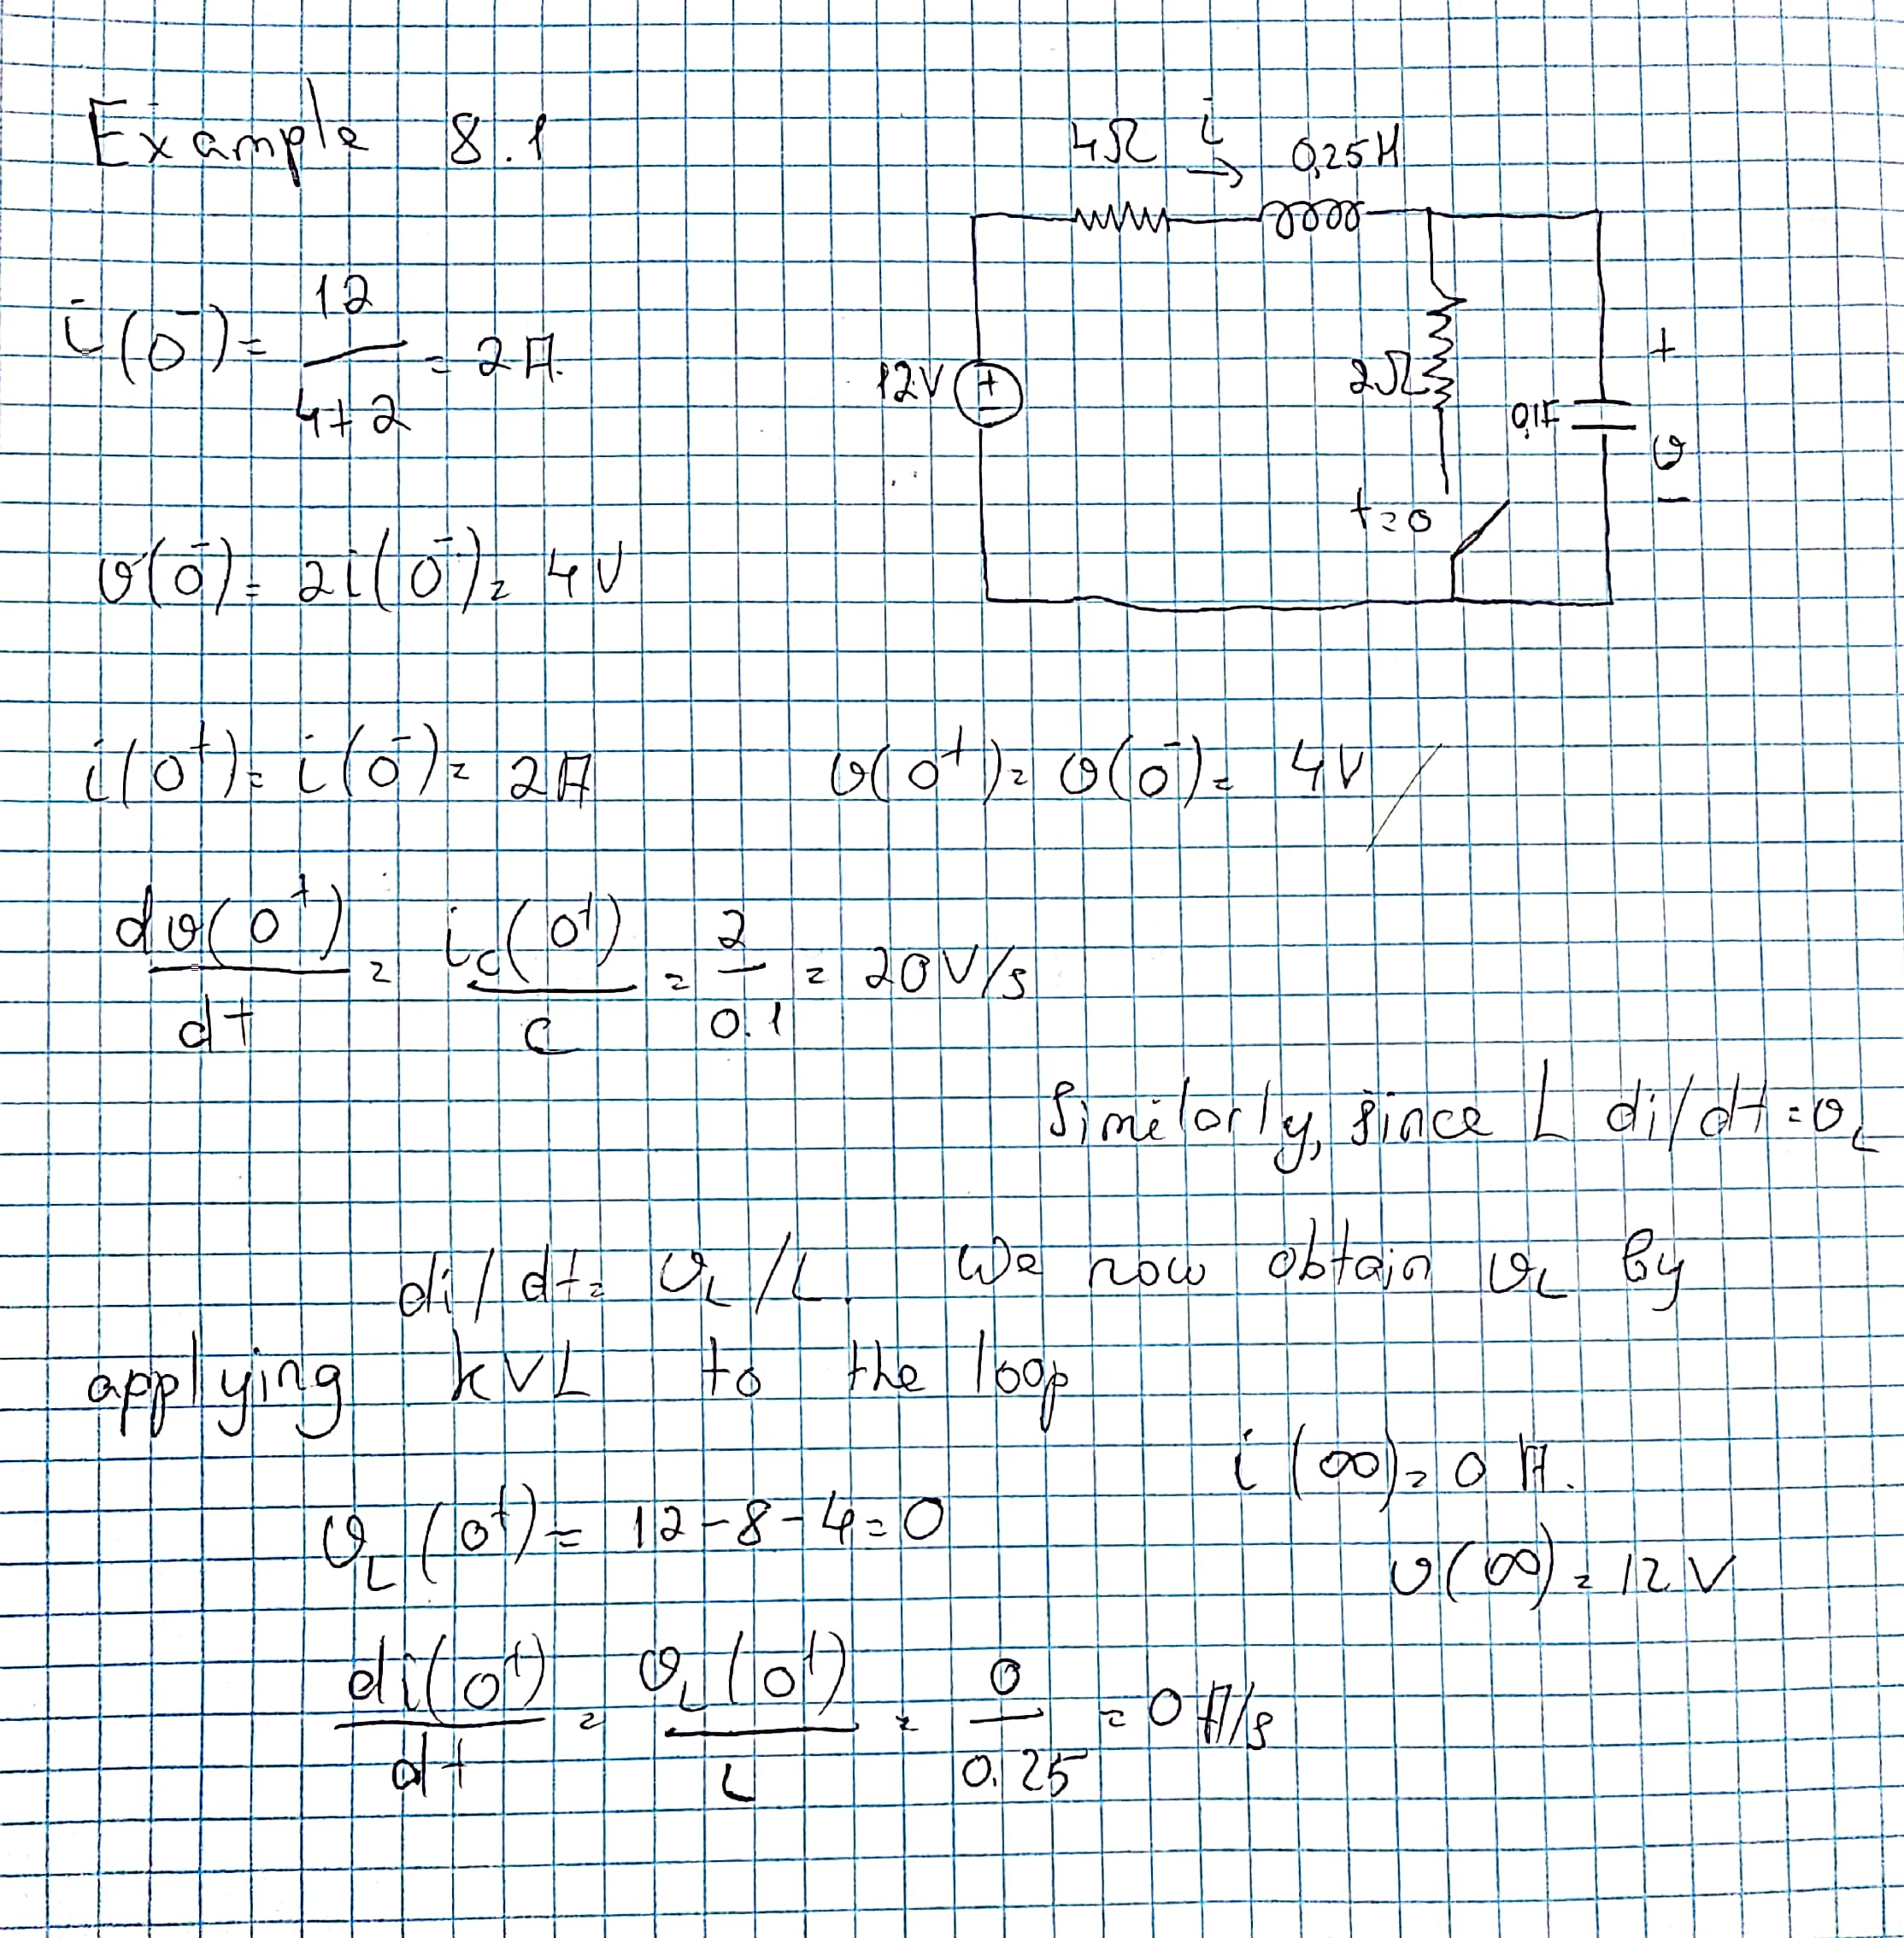 Example 8.1
4Ω i → 0,25H
i(0⁻) = 12 / 4+2 = 2A.
12V
2Ω
0,1F
+
v
−
t=0
v(0⁻) = 2i(0⁻) = 4V
i(0⁺) = i(0⁻) = 2A v(0⁺) = v(0⁻) = 4V
dv(0⁺)/dt = ic(0⁺)/C = 2/0.1 = 20V/s
Similarly, since L di/dt = vL
di/dt = vL/L. We now obtain vL by
applying kVL to the loop
i(∞) = 0 A.
vL(0⁺) = 12-8-4=0
v(∞) = 12 V
di(0⁺)/dt = vL(0⁺)/L = 0/0.25 = 0 A/s